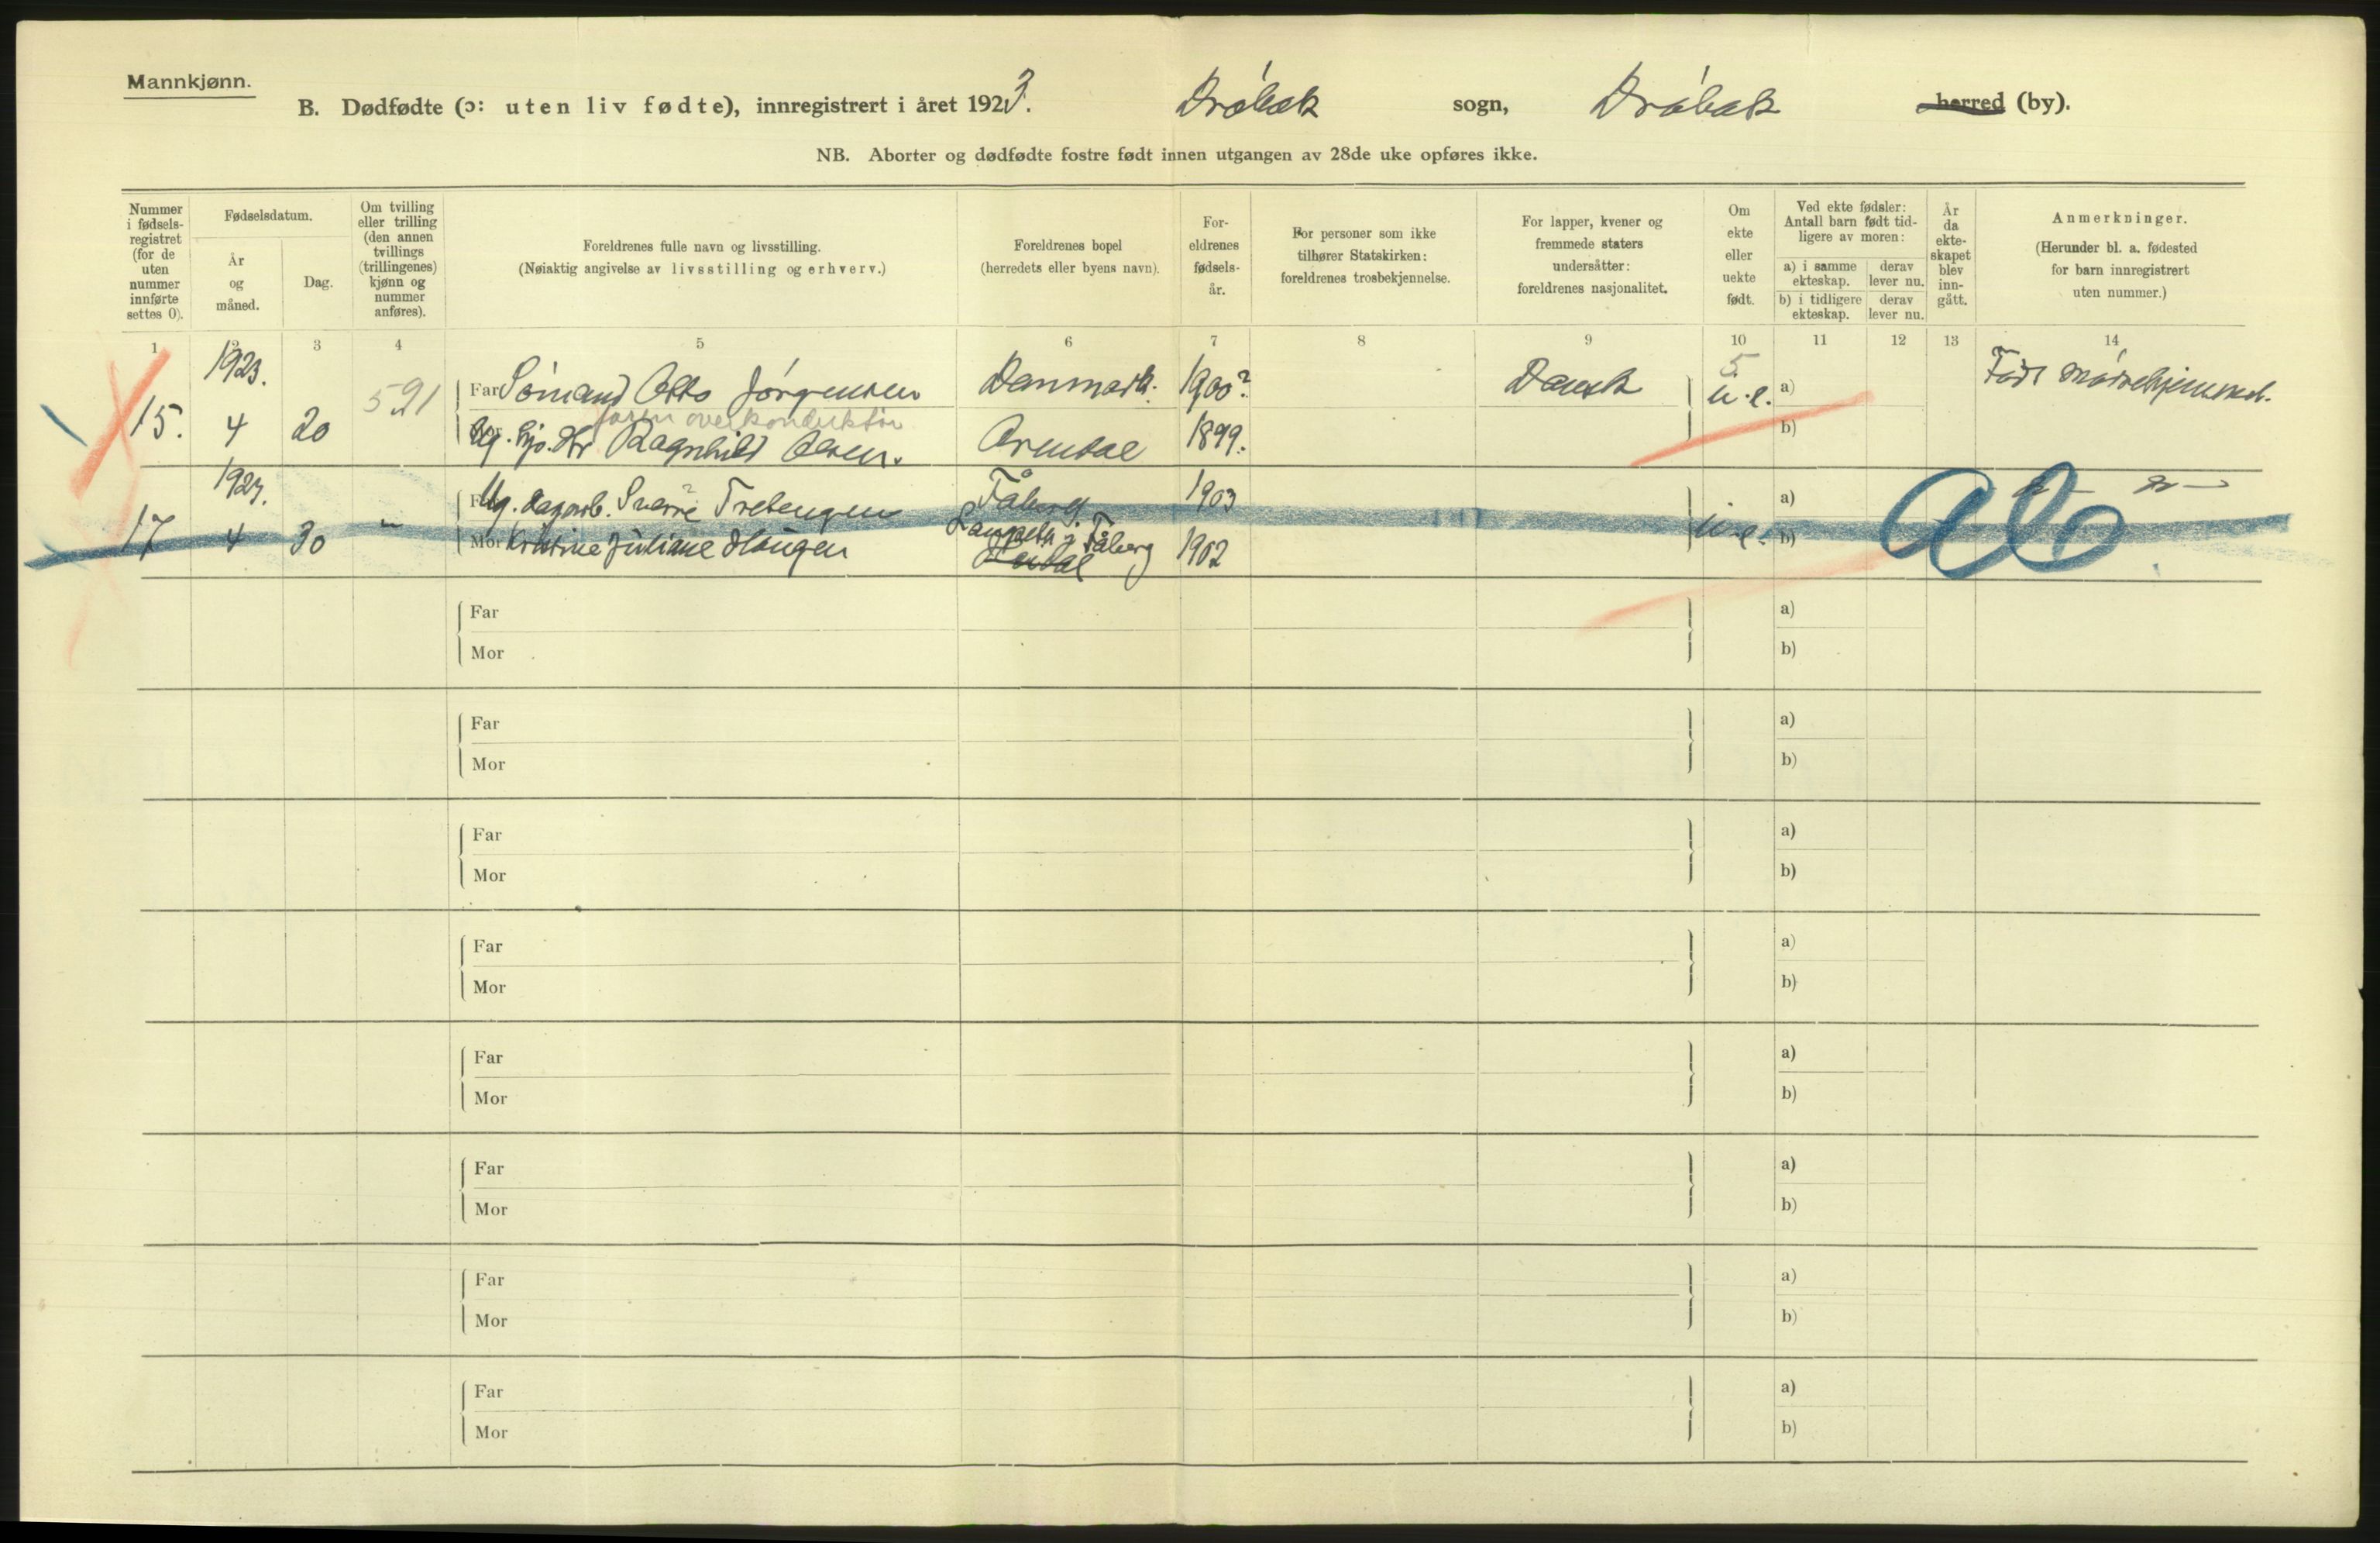 Mannkjønn.
B. Dødfødte (ɔ: uten liv fødte), innregistrert i året 1923. Drøbak sogn, Drøbak herred (by).
NB. Aborter og dødfødte fostre født innen utgangen av 28de uke opføres ikke.
Nummer i fødsels-registret (for de uten nummer innførte settes 0).
Fødselsdatum.
År og måned.
Dag.
Om tvilling eller trilling (den annen tvillings (trillingenes) kjønn og nummer anføres).
Foreldrenes fulle navn og livsstilling.
(Nøiaktig angivelse av livsstilling og erhverv.)
Foreldrenes bopel
(herredets eller byens navn).
For-eldrenes fødsels-år.
For personer som ikke tilhører Statskirken: foreldrenes trosbekjennelse.
For lapper, kvener og fremmede staters undersåtter: foreldrenes nasjonalitet.
Om ekte eller uekte født.
Ved ekte fødsler: Antall barn født tid-ligere av moren:
a) i samme ekteskap.
derav lever nu.
b) i tidligere ekteskap.
derav lever nu.
År da ekte-skapet blev inn-gått.
Anmerkninger.
(Herunder bl. a. fødested for barn innregistrert uten nummer.)
1 2 3 4 5 6 7 8 9 10 11 12 13 14
1923.
15. 4 20 591
Far Sømand Otto Jørgensen Danmark. 1900? Dansk 5 u.e. a) Født
faren overkonduktør
Mor Ug. Ragnhild Olsen. Arendal 1899. b)
1923.
17 4 30 "
Far Ug. dagarb. Sverre Tretengen Fåberg 1903 u.e. a)
Mor Kristine Juliane Haugen i Fåberg 1902 b)
Ab
Far a)
Mor b)
Far a)
Mor b)
Far a)
Mor b)
Far a)
Mor b)
Far a)
Mor b)
Far a)
Mor b)
Far a)
Mor b)
Far a)
Mor b)